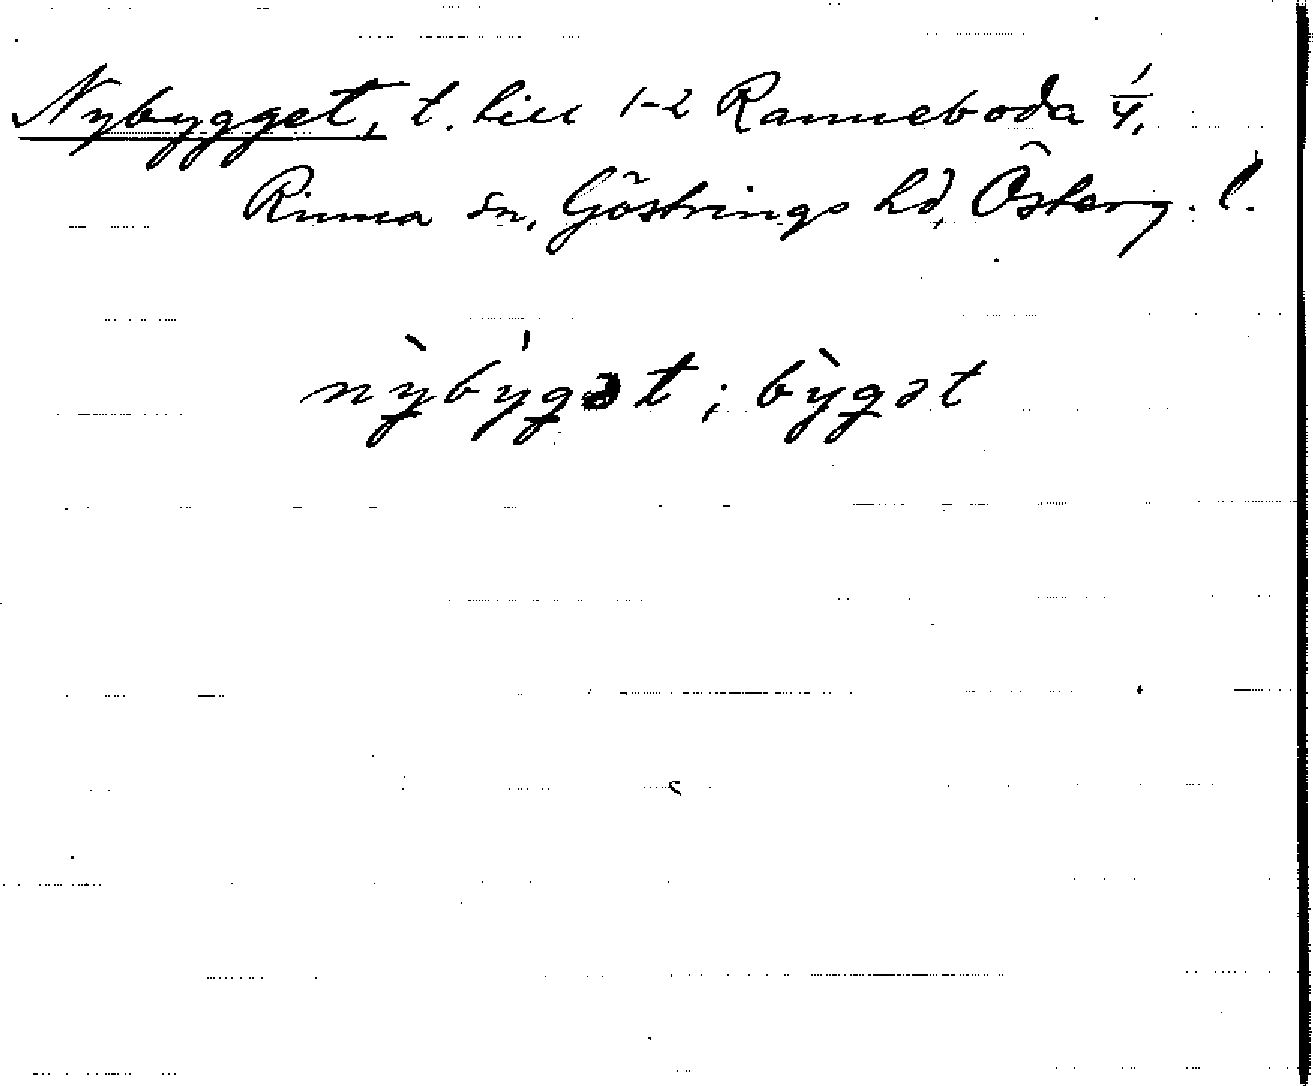 Nybygget, t. till 1-2 Ranneboda 1/4,
Rinna sn, Göstrings hd, Österg. l.
nỳbýgət ; bỳgət